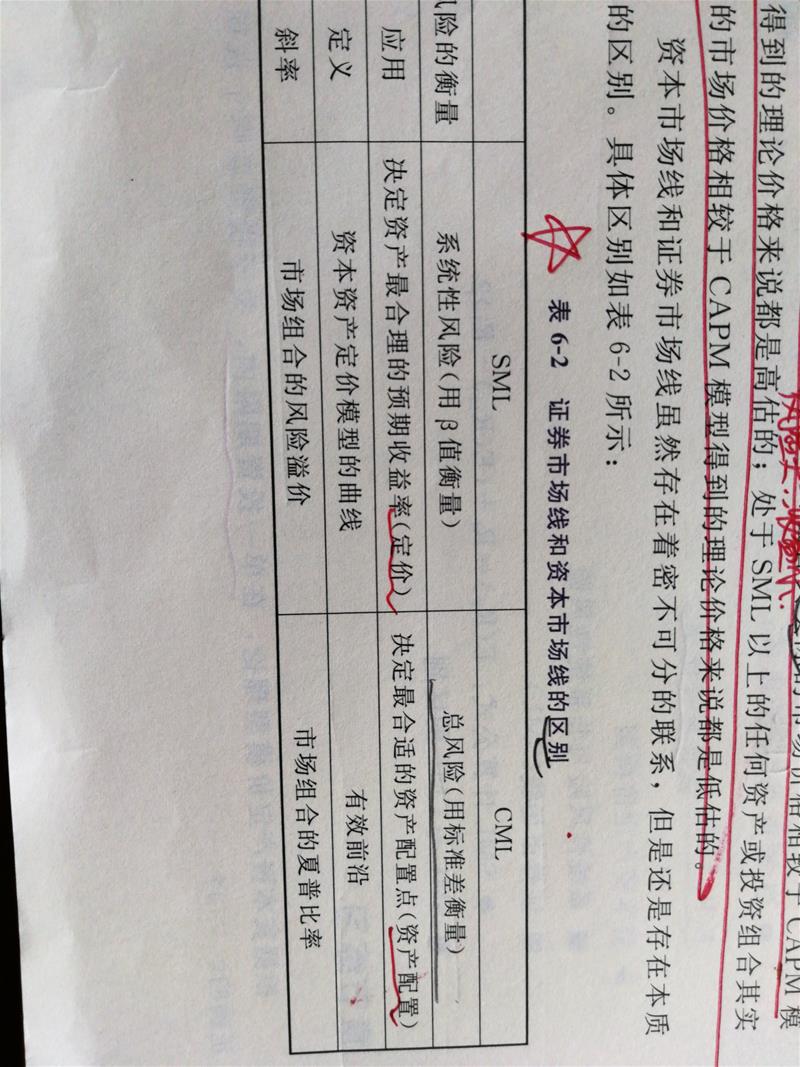 的市场价格相较于CAPM模
得到的理论价格来说都是高估的；处于SML以上的任何资产或投资组合其实
的市场价格相较于CAPM模型得到的理论价格来说都是低估的。
资本市场线和证券市场线虽然存在着密不可分的联系，但是还是存在本质
的区别。具体区别如表6-2所示：
表6-2 证券市场线和资本市场线的区别
SML CML
风险的衡量 系统性风险(用β值衡量) 总风险(用标准差衡量)
应用 决定资产最合理的预期收益率(定价) 决定最合适的资产配置点(资产配置)
定义 资本资产定价模型的曲线 有效前沿
斜率 市场组合的风险溢价 市场组合的夏普比率